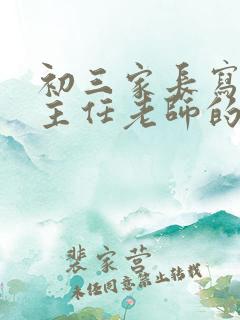 初三家長寫
主任老師的
裴家营
未经同意禁止转载